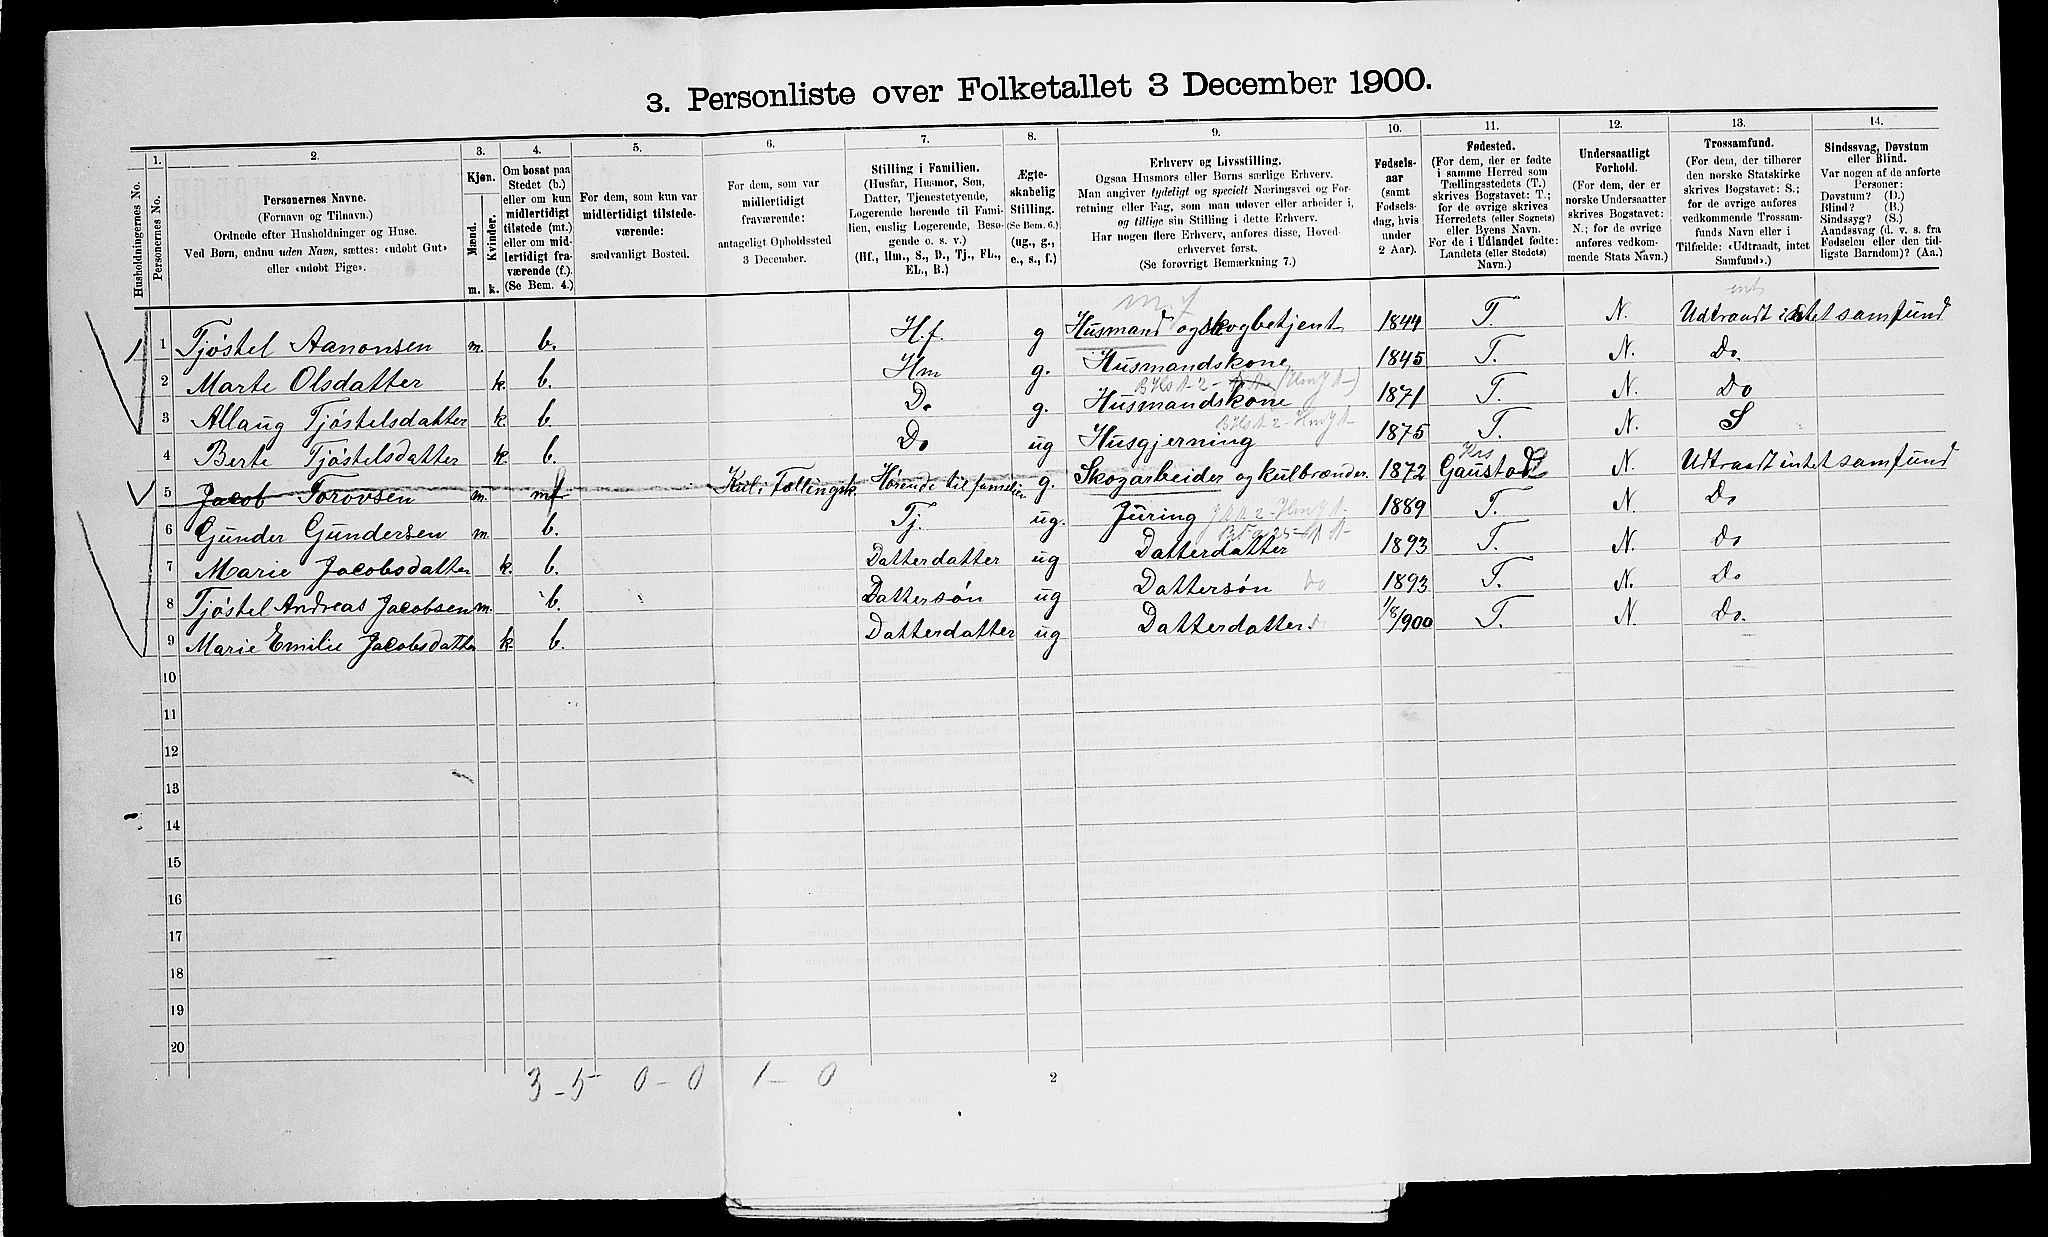 3. Personliste over Folketallet 3 December 1900.
Husholdningernes No.
1.
Personernes No.
2.
Personernes Navne.
(Fornavn og Tilnavn.)
Ordnede efter Husholdninger og Huse.
Ved Børn, endnu uden Navn, sættes: «udøbt Gut»
eller «udøbt Pige».
3.
Kjøn.
Mænd.
Kvinder.
m. k.
4.
Om bosat paa
Stedet (b.)
eller om kun
midlertidigt
tilstede (mt.)
eller om mid-
lertidigt fra-
værende (f.).
(Se Bem. 4.)
5.
For dem, som kun var
midlertidigt tilstede-
værende:
sædvanligt Bosted.
6.
For dem, som var
midlertidigt
fraværende:
antageligt Opholdssted
3 December.
7.
Stilling i Familien.
(Husfar, Husmor, Søn,
Datter, Tjenestetyende,
Logerende hørende til Fami-
lien, enslig Logerende, Besø-
gende o. s. v.)
(Hf., Hm., S., D., Tj., FL.,
EL., B.)
8.
Ægte-
skabelig
Stilling.
(Se Bem. 6.)
(ug., g.,
e., s., f.)
9.
Erhverv og Livsstilling.
Ogsaa Husmors eller Børns særlige Erhverv.
Man angiver tydeligt og specielt Næringsvei og For-
retning eller Fag, som man udøver eller arbeider i,
og tillige sin Stilling i dette Erhverv.
Har nogen flere Erhverv, anføres disse, Hoved-
erhvervet først.
(Se forøvrigt Bemærkning 7.)
10.
Fødsels-
aar
(samt
Fødsels-
dag, hvis
under
2 Aar).
11.
Fødested.
(For dem, der er fødte
i samme Herred som
Tællingsstedets (T.)
skrives Bogstavet: T.;
for de øvrige skrives
Herredets (eller Sognets)
eller Byens Navn.
For de i Udlandet fødte:
Landets (eller Stedets)
Navn.)
12.
Undersaatligt
Forhold.
(For dem, der er
norske Undersaatter
skrives Bogstavet:
N.; for de øvrige
anføres vedkom-
mende Stats Navn.)
13.
Trossamfund.
(For dem, der tilhører
den norske Statskirke
skrives Bogstavet: S.;
for de øvrige anføres
vedkommende Trossam-
funds Navn eller i
Tilfælde: «Udtraadt, intet
Samfund».)
14.
Sindssvag, Døvstum
eller Blind.
Var nogen af de anførte
Personer:
Døvstum? (D.)
Blind? (B.)
Sindssyg? (S.)
Aandssvag (d. v. s. fra
Fødselen eller den tid-
ligste Barndom)? (Aa.)
1 1 Tjøstel Aanonsen m. b. H.f. g Husmand og skogbetjent 1844 T. N. Udtraadt intet samfund
2 Marte Olsdatter k. b. Hm g. Husmandskone 1845 T. N. Do.
3 Allaug Tjøstelsdatter k. b. Do g. Husmandskone 1871 T. N. Do
4 Berte Tjøstelsdatter k. b. Do ug Husgjerning 1875 T. N. S
5 Jacob Torovsen m. Hørende til familien g. Skogarbeider og kulbrænder. 1872 Gaustad N. Udtraadt intet samfund
6 Gunder Gundersen m. b. Tj. ug. 1889 T. N. Do
7 Marie Jacobsdatter k. b. Datterdatter ug Datterdatter 1893 T. N. Do
8 Tjøstel Andreas Jacobsen m. b. Dattersøn ug Dattersøn Do 1893 T. N. Do
9 Marie Emilie Jacobsdatter k. b. Datterdatter ug Datterdatter 1/8/900 T. N. Do.
10
11
12
13
14
15
16
17
18
19
20
3 - 5 0 - 0 1 - 0
2